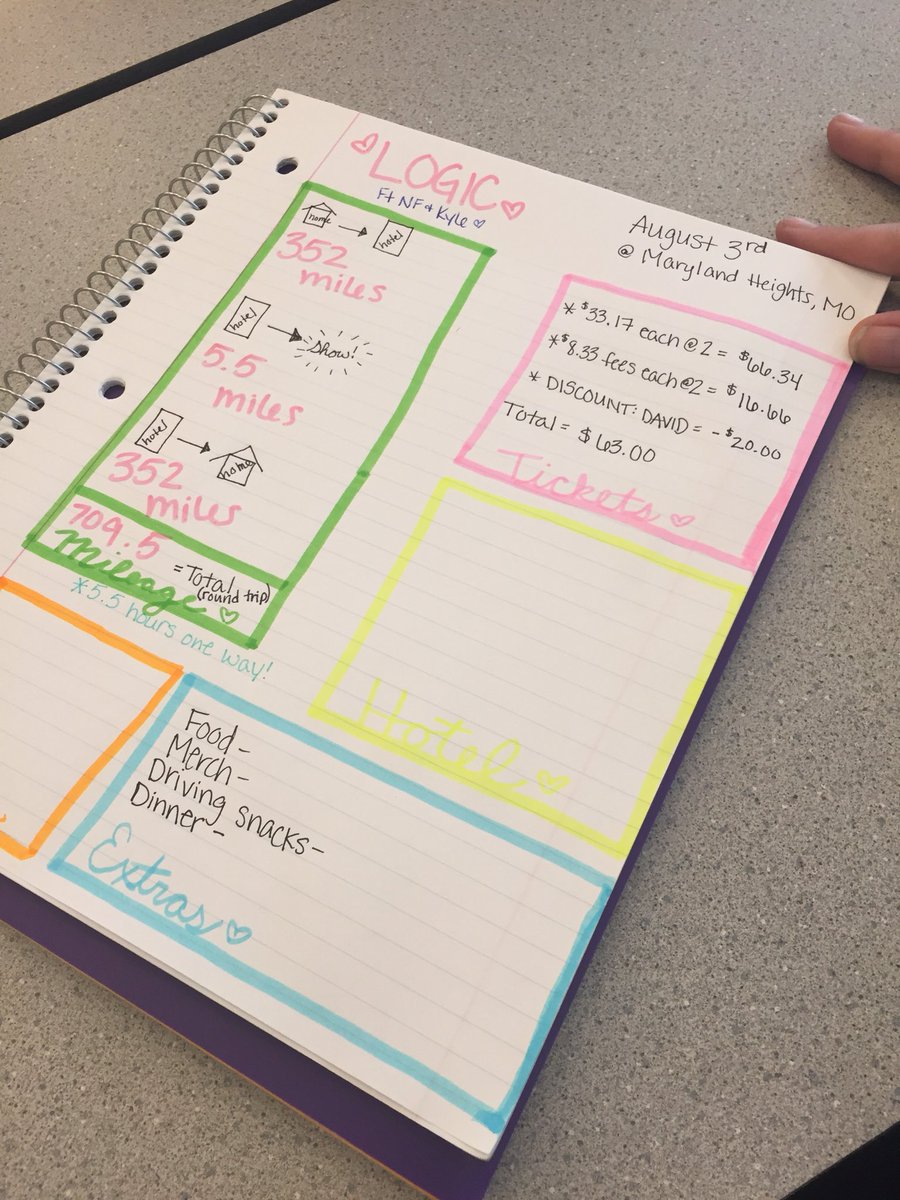 LOGIC
Ft NF & Kyle
August 3rd
@ Maryland Heights, MO
home → hotel
352
miles
hotel → Show!
5.5
miles
hotel → home
352
miles
709.5
= Total
(round trip)
Mileage
*5.5 hours one way!
* $33.17 each @ 2 = $66.34
* $8.33 fees each @ 2 = $16.66
* DISCOUNT: DAVID = -$20.00
Total = $63.00
Tickets
Hotel
Food-
Merch-
Driving snacks-
Dinner-
Extras